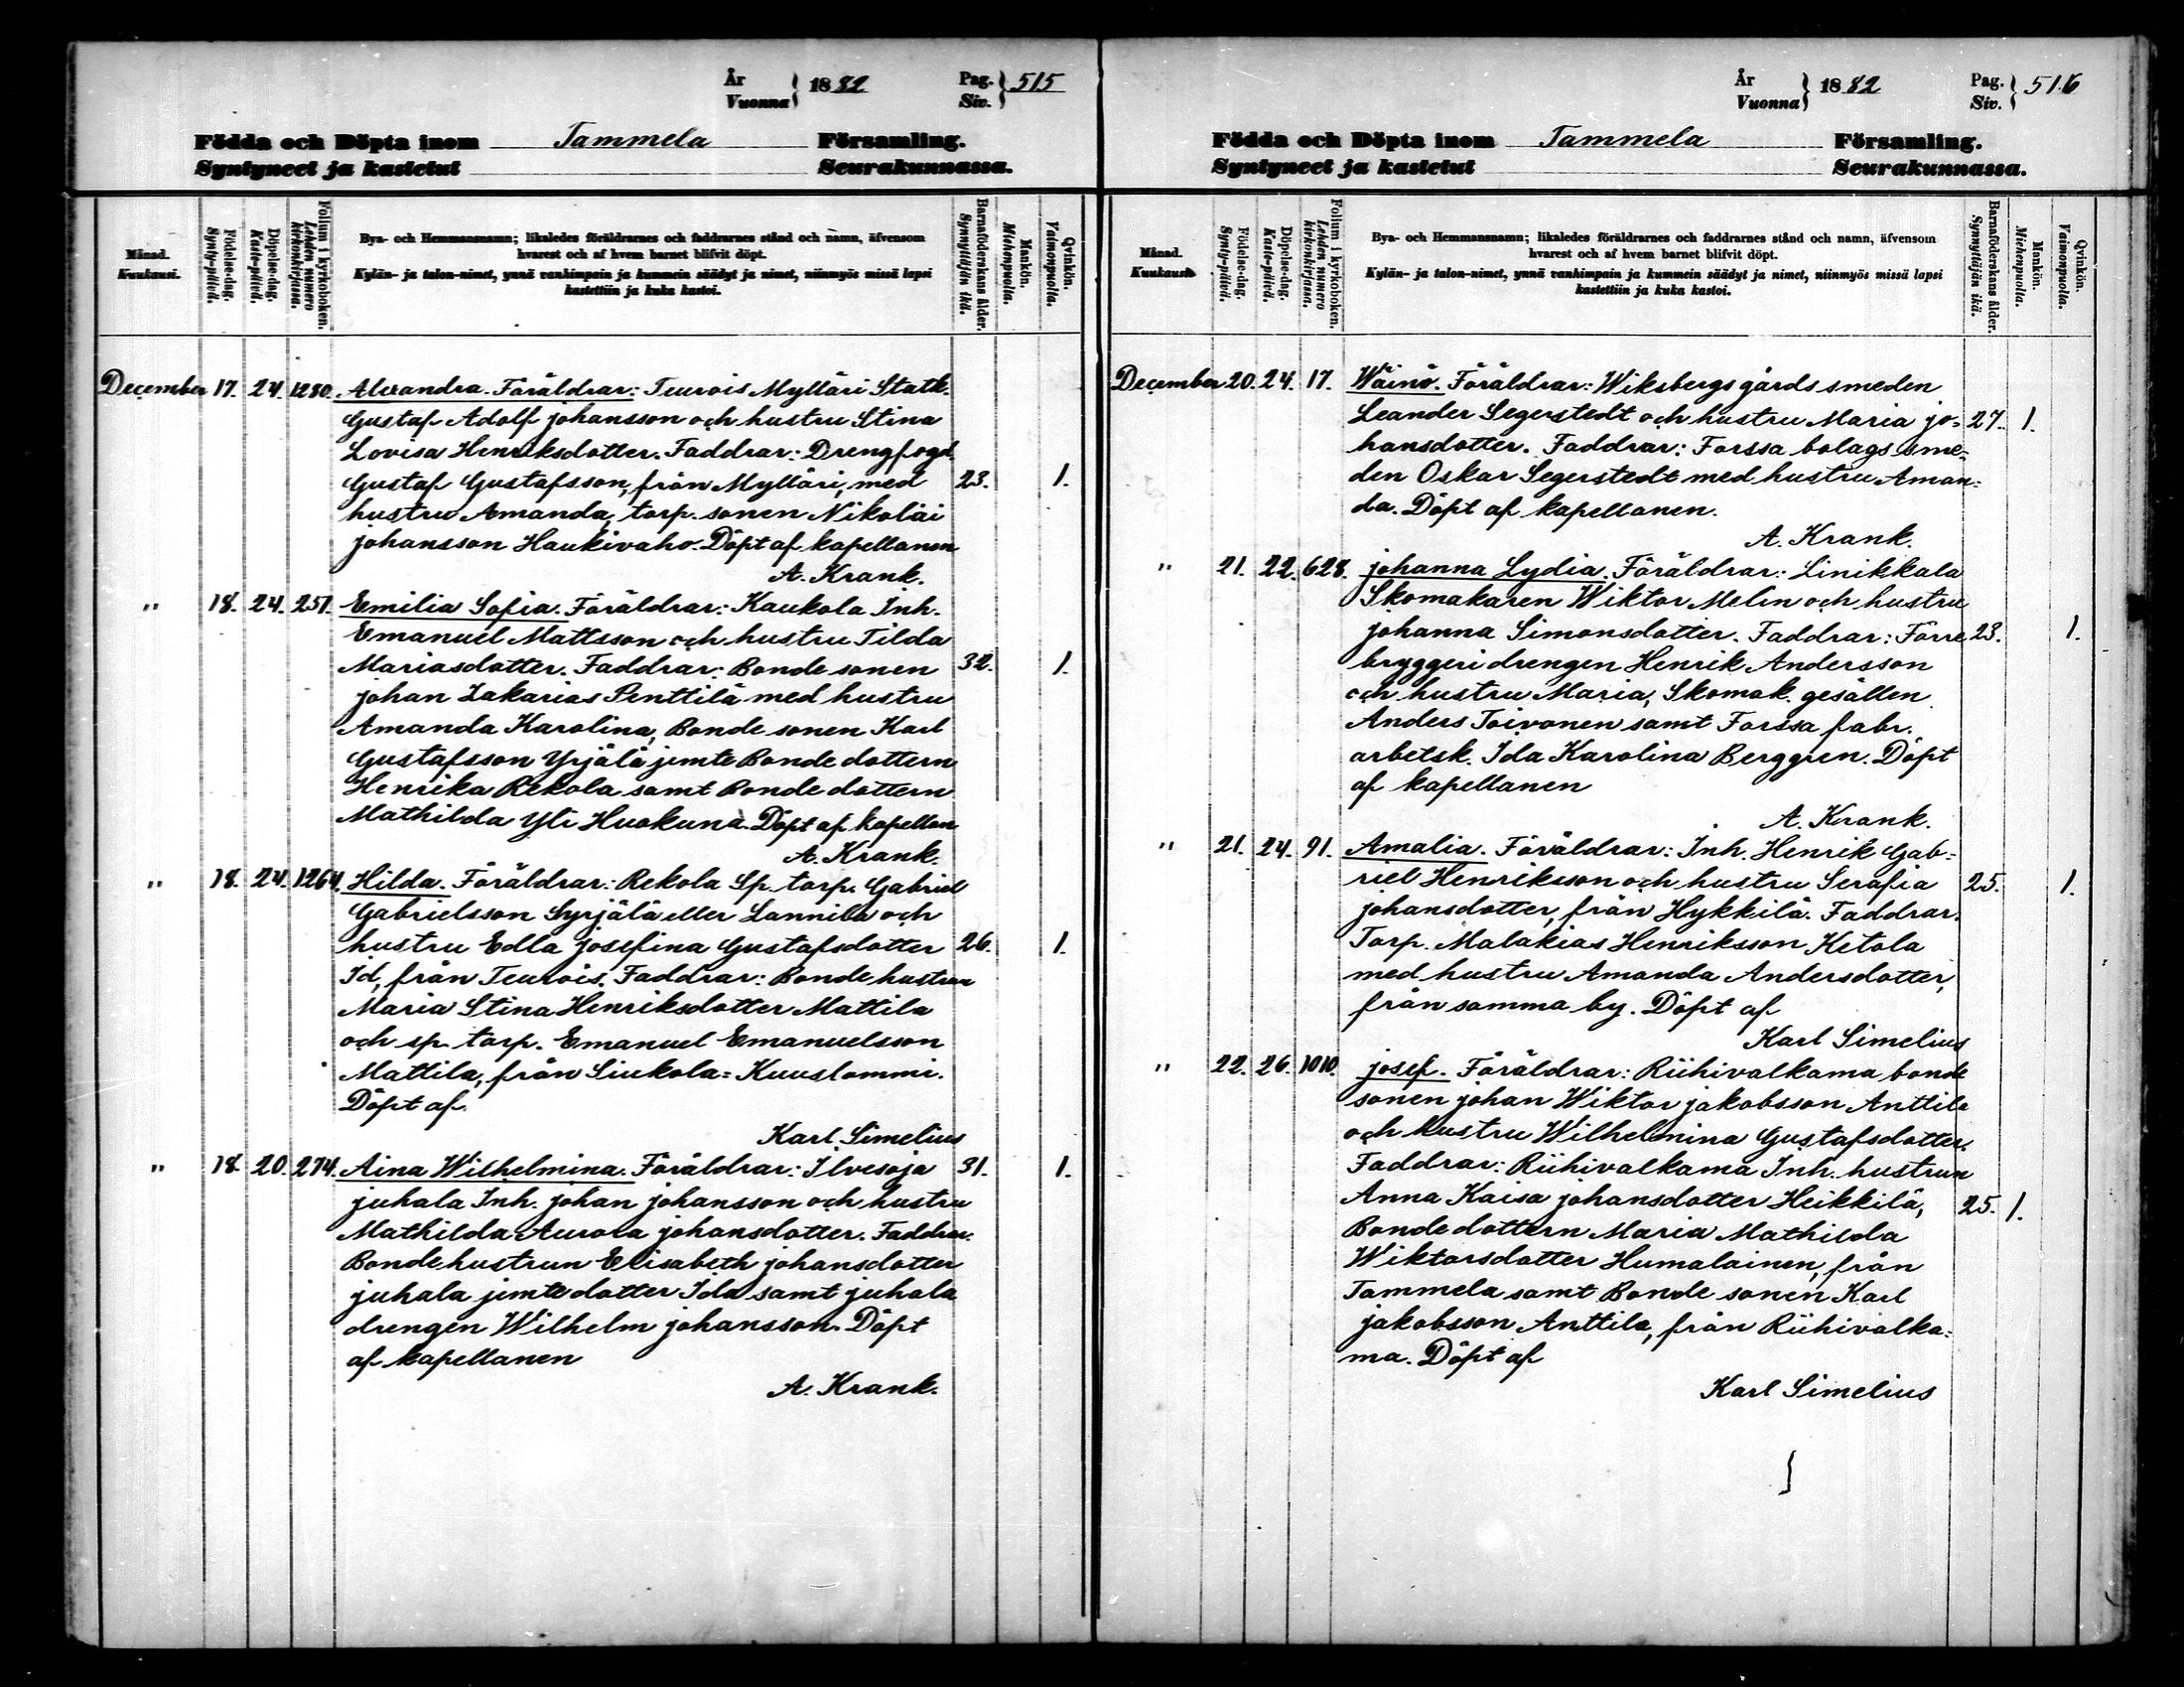 År
Vuonna } 1882 Pag.
Siv. } 515
Födda och Döpta inom Tammela Församling.
Syntyneet ja kastetut Seurakunnassa.
Månad.
Kuukausi.
Födelse-dag.
Synty-päivä.
Döpelse-dag.
Kaste-päivä.
Folium i kyrkoboken.
Lehden numero
kirkonkirjassa.
Bya- och Hemmansnamn; likaledes föräldrarnes och faddrarnes stånd och namn, äfvensom
hvarest och af hvem barnet blifvit döpt.
Kylän- ja talon-nimet, ynnä vanhimpain ja kummein säädyt ja nimet, niinmyös missä lapsi
kastettiin ja kuka kastoi.
Barnaföderskans ålder.
Synnyttäjän ikä.
Mankön.
Miehenpuolta.
Qvinkön.
Vaimonpuolta.
December 17. 24. 1280. Alexandra. Föräldrar: Teurois Mylläri Statk.
Gustaf Adolf Johansson och hustru Stina
Lovisa Henriksdotter. Faddrar: Drengfogd.
Gustaf Gustafsson, från Mylläri, med 23. 1.
hustru Amanda, torp. sonen Nikolai
Johansson Haukivaho. Döpt af kapellanen
A. Krank.
" 18. 24. 257. Emilia Sofia. Föräldrar: Kaukola Inh.
Emanuel Mattsson och hustru Tilda
Mariasdotter. Faddrar: Bonde sonen 32. 1.
Johan Zakarias Penttilä med hustru
Amanda Karolina, Bonde sonen Karl
Gustafsson Yrjälä jemte Bonde dottern
Henrika Rekola samt Bonde dottern
Mathilda Yli Huokuna. Döpt af kapellan
A. Krank.
" 18. 24. 1264. Hilda. Föräldrar: Rekola Sp. torp. Gabriel
Gabrielsson Syrjälä eller Lannila och
hustru Edla Josefina Gustafsdotter 26. 1.
Id, från Teurois. Faddrar: Bonde hustrun
Maria Stina Henriksdotter Mattila
och sp. torp. Emanuel Emanuelsson
Mattila, från Liukola= Kuuslammi.
Döpt af
Karl Simelius
" 18. 20. 274. Aina Wilhelmina. Föräldrar: Ilvesoja 31. 1.
Juhala Inh. Johan Johansson och hustru
Mathilda Aurora Johansdotter. Faddrar:
Bonde hustrun Elisabeth Johansdotter
Juhala jemte dotter Ida samt Juhala
drengen Wilhelm Johansson. Döpt
af kapellanen
A. Krank.
År
Vuonna } 1882 Pag.
Siv. } 516
Födda och Döpta inom Tammela Församling.
Syntyneet ja kastetut Seurakunnassa.
Månad.
Kuukausi.
Födelse-dag.
Synty-päivä.
Döpelse-dag.
Kaste-päivä.
Folium i kyrkoboken.
Lehden numero
kirkonkirjassa.
Bya- och Hemmansnamn; likaledes föräldrarnes och faddrarnes stånd och namn, äfvensom
hvarest och af hvem barnet blifvit döpt.
Kylän- ja talon-nimet, ynnä vanhimpain ja kummein säädyt ja nimet, niinmyös missä lapsi
kastettiin ja kuka kastoi.
Barnaföderskans ålder.
Synnyttäjän ikä.
Mankön.
Miehenpuolta.
Qvinkön.
Vaimonpuolta.
December 20. 24. 17. Wäinö. Föräldrar: Wiksbergs gårds smeden
Leander Segerstedt och hustru Maria Jo= 27. 1.
hansdotter. Faddrar: Forssa bolags sme=
den Oskar Segerstedt med hustru Aman=
da. Döpt af kapellanen.
A. Krank.
" 21. 22. 628. Johanna Lydia. Föräldrar: Linikkala
Skomakaren Wiktor Melin och hustru
Johanna Simonsdotter. Faddrar: Forre 23. 1.
bryggeri drengen Henrik Andersson
och hustru Maria, Skomak. gesällen
Anders Toivonen samt Forssa fabr.
arbetsk. Ida Karolina Berggren. Döpt
af kapellanen
A. Krank.
" 21. 24. 91. Amalia. Föräldrar: Inh. Henrik Gab=
riel Henriksson och hustru Serafia 25. 1.
Johansdotter, från Hykkilä. Faddrar:
Torp. Malakias Henriksson Ketola
med hustru Amanda Andersdotter,
från samma by. Döpt af
Karl Simelius
" 22. 26. 1010. Josef. Föräldrar: Riihivalkama bonde
sonen Johan Wiktor Jakobsson Anttila
och hustru Wilhelmina Gustafsdotter.
Faddrar: Riihivalkama Inh. hustrun
Anna Kaisa Johansdotter Heikkilä, 25. 1.
Bonde dottern Maria Mathilda
Wiktorsdotter Humalainen, från
Tammela samt Bonde sonen Karl
Jakobsson Anttila, från Riihivalka=
ma. Döpt af
Karl Simelius